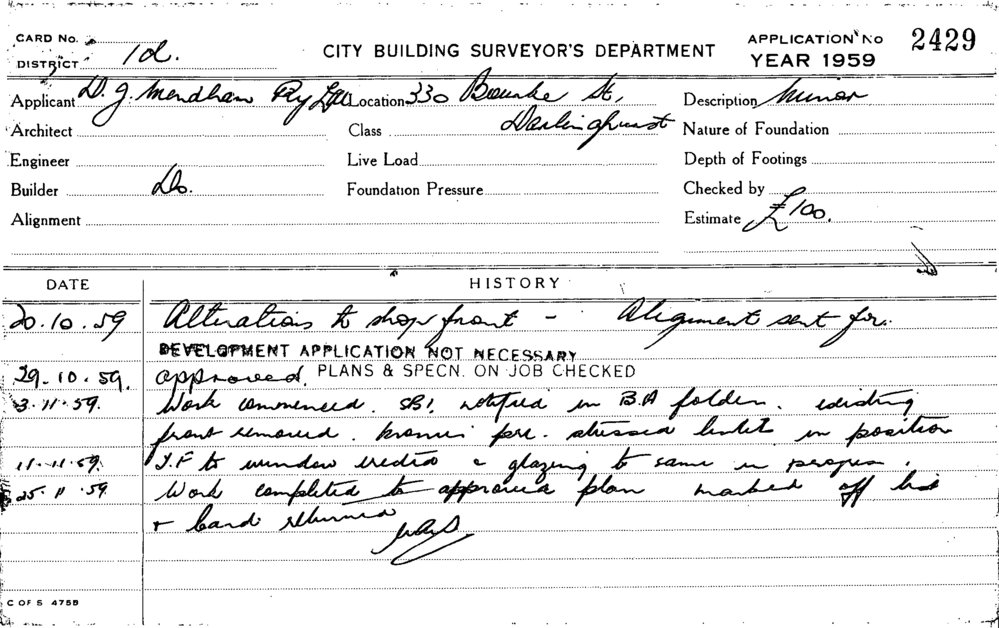 CARD No.
CITY BUILDING SURVEYOR'S DEPARTMENT
APPLICATION No 2429
DISTRICT 1d.
YEAR 1959
Applicant D. J. Mendham Pty Ltd Location 330 Bourke St, Darlinghurst Description Minor
Architect Class Nature of Foundation
Engineer Live Load Depth of Footings
Builder Do. Foundation Pressure Checked by
Alignment Estimate £100.
DATE HISTORY
20.10.59 Alterations to shop front - Alignment sent for.
DEVELOPMENT APPLICATION NOT NECESSARY
29.10.59. approved. PLANS & SPECN. ON JOB CHECKED
3.11.59. Work commenced. SB1. notified in B.A folder. existing
front removed. pre. stressed lintel in position
11.11.59. T.F to window erected & glazing to same in progress.
25.11.59. Work completed to approved plan marked off list
+ Card returned
C OF S 475B